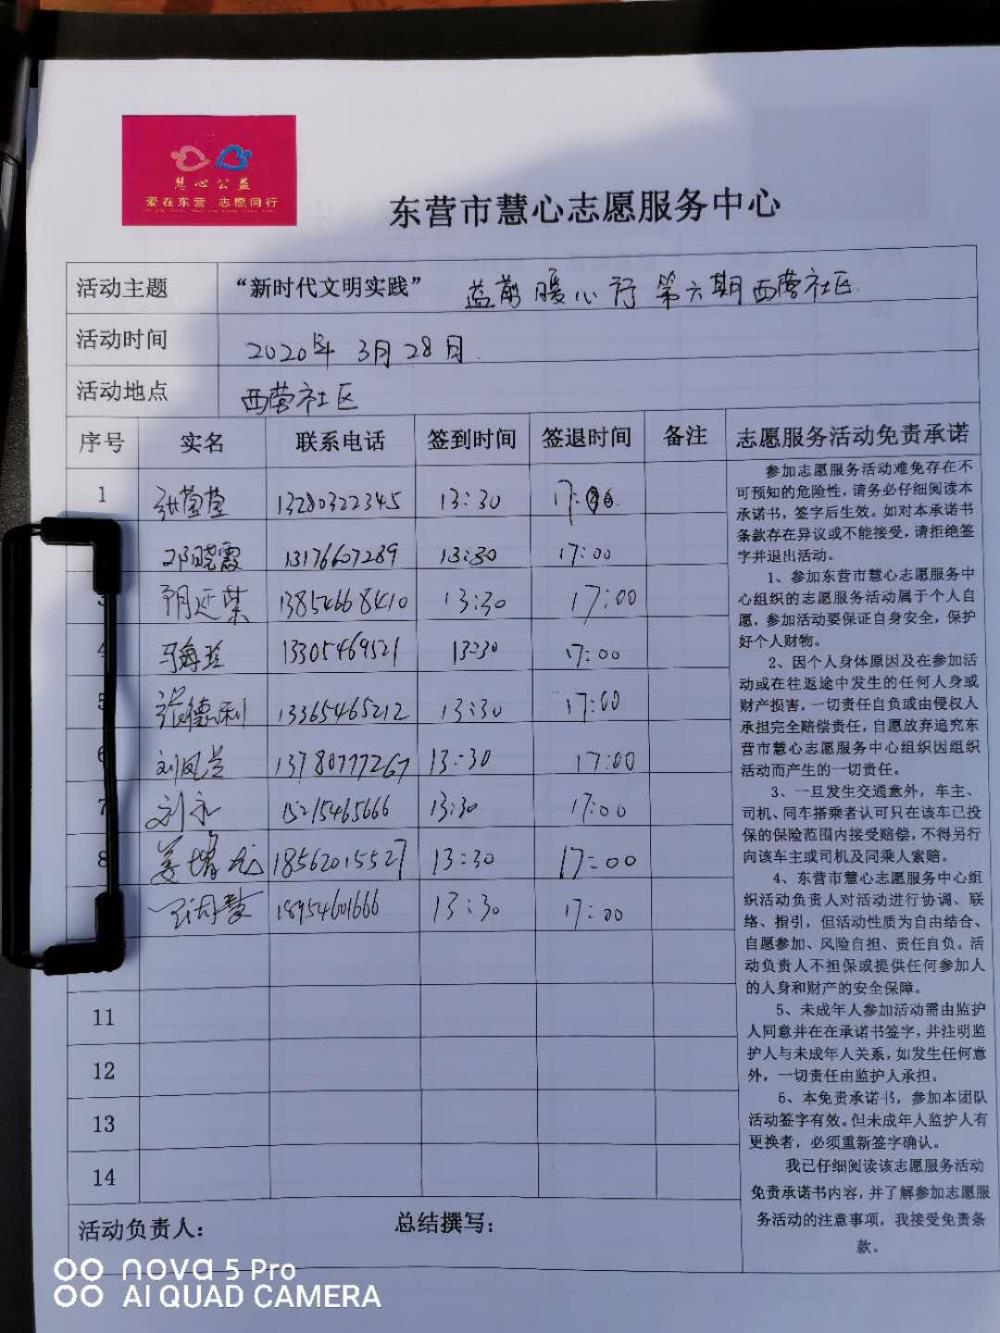 慧心公益
爱在东营 志愿同行
东营市慧心志愿服务中心
活动主题 “新时代文明实践” 益前暖心行 第六期西营社区
活动时间 2020年 3月 28日
活动地点 西营社区
序号 实名 联系电话 签到时间 签退时间 备注 志愿服务活动免责承诺
1 张莹莹 13280322345 13:30
邓晓霞 13176607289 13:30 17:00
3 延荣 13854668410 13:30 17:00
4 马海玲 13305469521 13:30 17:00
5 张德利 13365465212 13:30 17:00
6 刘凤兰 13780777267 13:30 17:00
7 刘永 15215465666 13:30 17:00
8 姜增龙 18562015527 13:30 17:00
18954601666 13:30 17:00
11
12
13
14
活动负责人： 总结撰写：
参加志愿服务活动难免存在不
可预知的危险性，请务必仔细阅读本
承诺书，签字后生效。如对本承诺书
条款存在异议或不能接受，请拒绝签
字并退出活动。
1、参加东营市慧心志愿服务中
心组织的志愿服务活动属于个人自
愿，参加活动要保证自身安全，保护
好个人财物。
2、因个人身体原因及在参加活
动或在往返途中发生的任何人身或
财产损害，一切责任自负或由侵权人
承担完全赔偿责任，自愿放弃追究东
营市慧心志愿服务中心组织因组织
活动而产生的一切责任。
3、一旦发生交通意外，车主、
司机、同车搭乘者认可只在该车已投
保的保险范围内接受赔偿，不得另行
向该车主或司机及同乘人索赔。
4、东营市慧心志愿服务中心组
织活动负责人对活动进行协调、联
络、指引，但活动性质为自由结合、
自愿参加、风险自担、责任自负。活
动负责人不担保或提供任何参加人
的人身和财产的安全保障。
5、未成年人参加活动需由监护
人同意并在在承诺书签字，并注明监
护人与未成年人关系，如发生任何意
外，一切责任由监护人承担。
6、本免责承诺书，参加本团队
活动签字有效。但未成年人监护人有
更换者，必须重新签字确认。
我已仔细阅读该志愿服务活动
免责承诺书内容，并了解参加志愿服
务活动的注意事项，我接受免责条
款。
nova 5 Pro
AI QUAD CAMERA